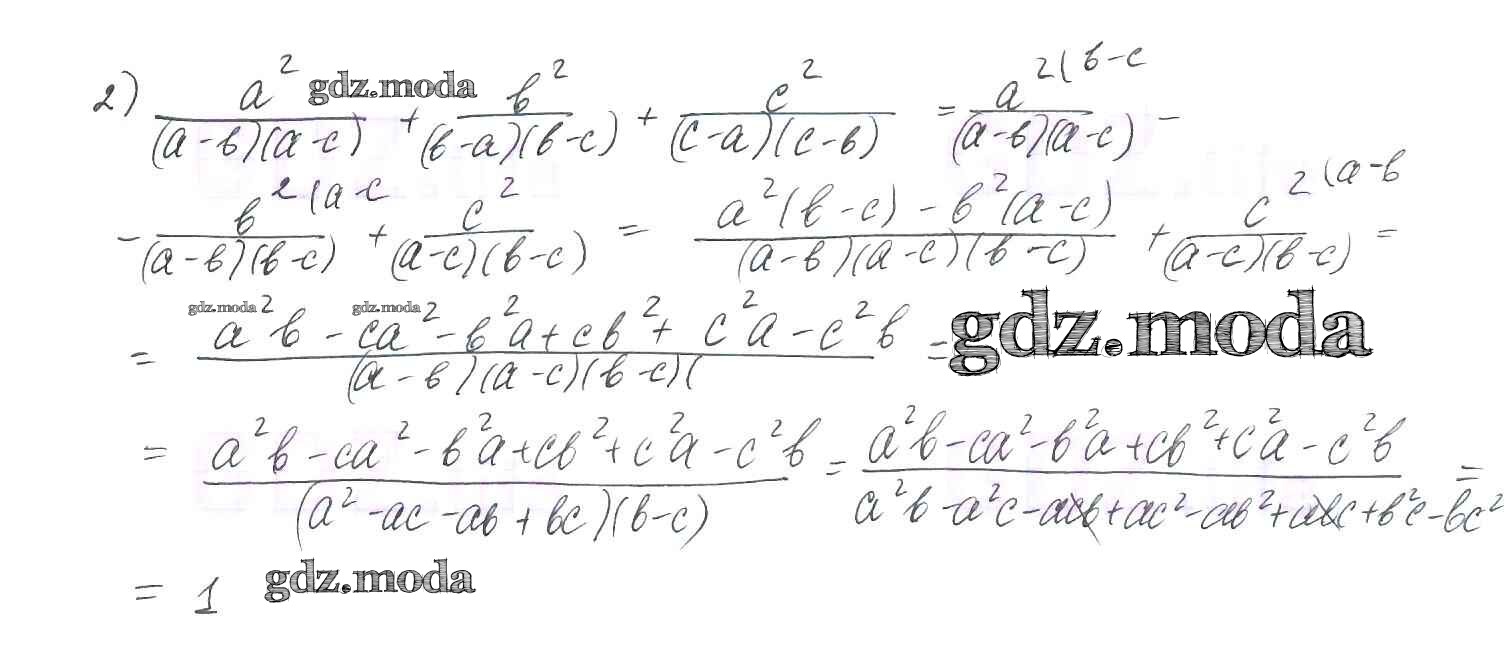 2) a²/((a-b)(a-c)) + b²/((b-a)(b-c)) + c²/((c-a)(c-b)) = a^2(b-c/((a-b)(a-c)) -
gdz.moda
- b^2(a-c/((a-b)(b-c)) + c²/((a-c)(b-c)) = (a²(b-c) - b²(a-c))/((a-b)(a-c)(b-c)) + c^2(a-b/((a-c)(b-c)) =
gdz.moda gdz.moda
= (a²b - ca² - b²a + cb² + c²a - c²b)/((a-b)(a-c)(b-c)() =
gdz.moda
= (a²b - ca² - b²a + cb² + c²a - c²b)/((a² - ac - ab + bc)(b-c)) = (a²b - ca² - b²a + cb² + c²a - c²b)/(a²b - a²c - acb + ac² - ab² + abc + b²c - bc²) =
= 1 gdz.moda